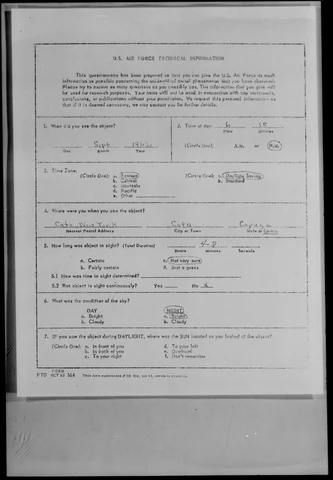 U.S. AIR FORCE TECHNICAL INFORMATION
This questionnaire has been prepared so that you can give the U.S. Air Force as much
information as possible concerning the unidentified aerial phenomenon that you have observed.
Please try to answer as many questions as you possibly can. The information that you give will
be used for research purposes. Your name will not be used in connection with any statements,
conclusions, or publications without your permission. We request this personal information so
that if it is deemed necessary, we may contact you for further details.
1. When did you see the object?
Sept
Day Month Year
2. Time of day: 6 15
Hour Minutes
(Circle One): A.M. or P.M.
3. Time Zone:
(Circle One): a. Eastern
b. Central
c. Mountain
d. Pacific
e. Other
(Circle One): a. Daylight Saving
b. Standard
4. Where were you when you saw the object?
Cato, New York Cato Cayuga
Nearest Postal Address City or Town State or County
5. How long was object in sight? (Total Duration)
Hours Minutes Seconds
a. Certain c. Not very sure
b. Fairly certain d. Just a guess
5.1 How was time in sight determined?
5.2 Was object in sight continuously? Yes No
6. What was the condition of the sky?
DAY NIGHT
a. Bright a. Bright
b. Cloudy b. Cloudy
7. IF you saw the object during DAYLIGHT, where was the SUN located as you looked at the object?
(Circle One): a. In front of you d. To your left
b. In back of you e. Overhead
c. To your right f. Don't remember
FORM
FTD OCT 62 164